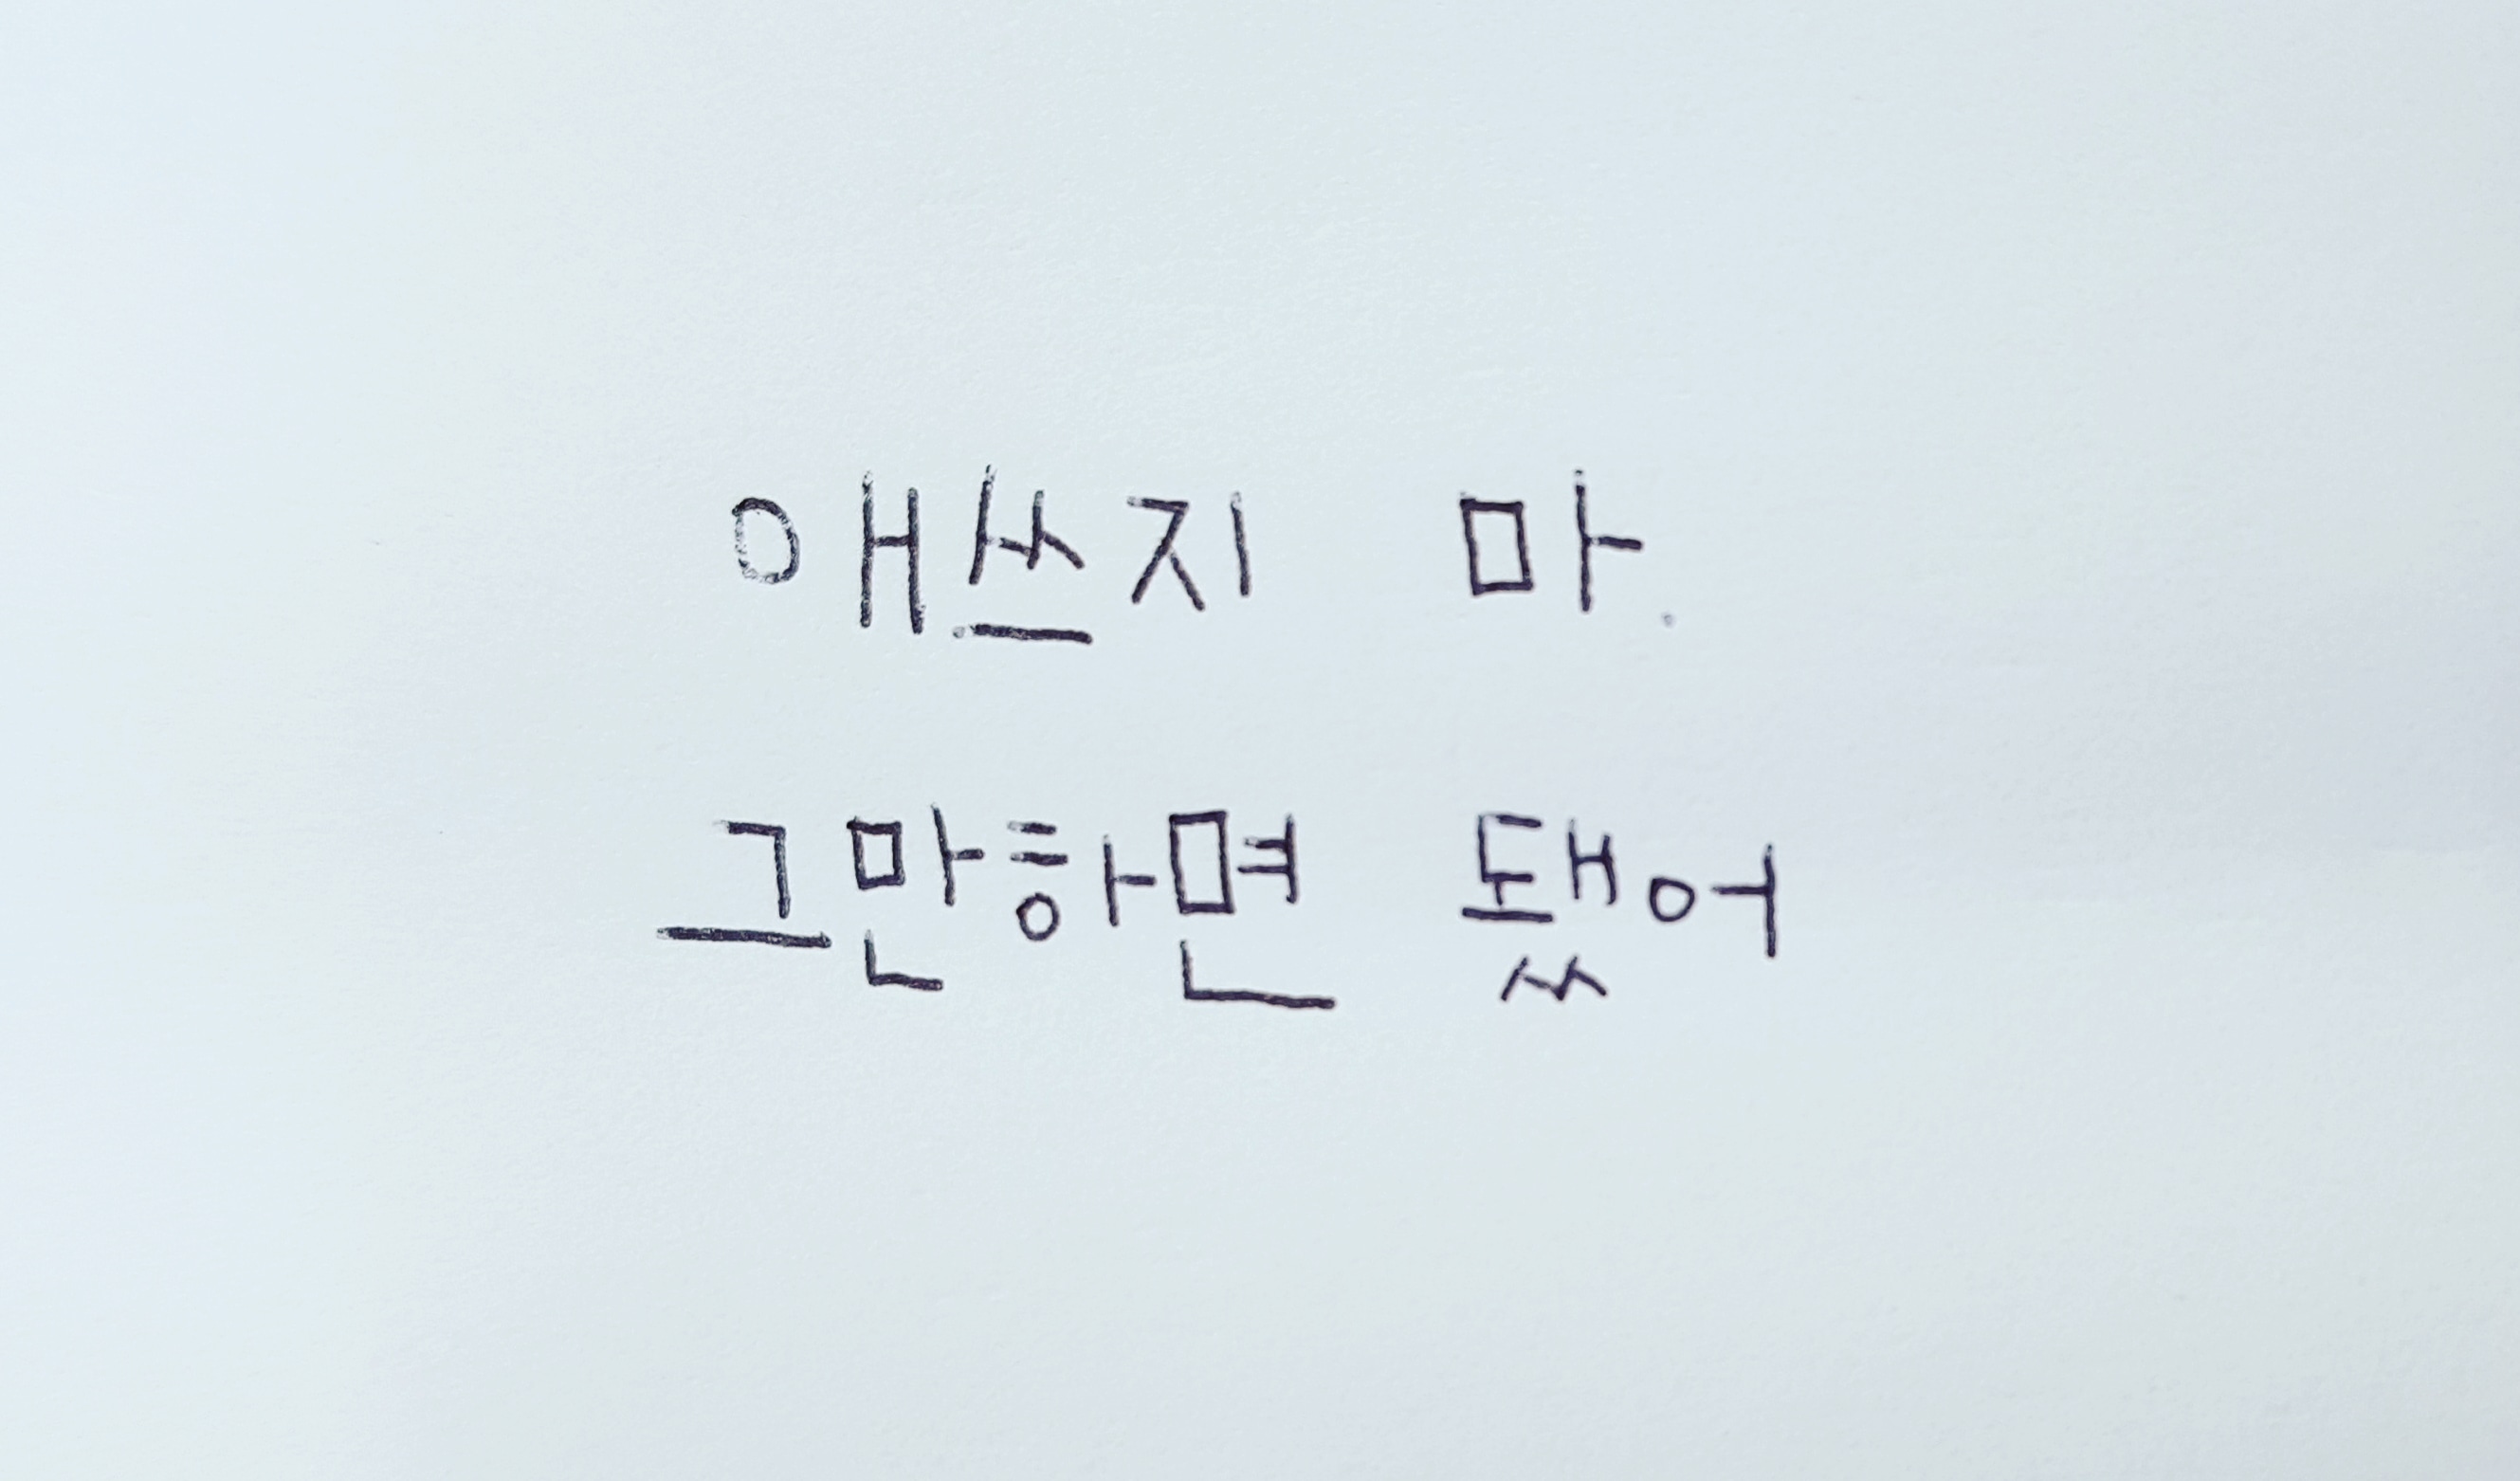 애쓰지 마.
그만하면 됐어